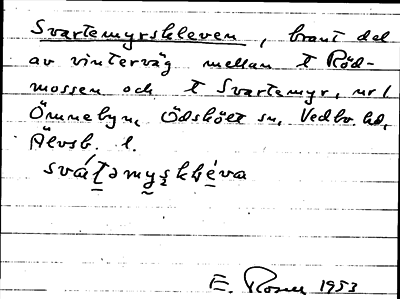 Svartemyrskleven, brant del
av vinterväg mellan t Röd-
mossen och t Svartemyr, nr 1
Ömnebyn, Ödskölt sn, Vedbo hd,
Älvsb. l.
E. Rosen 1953